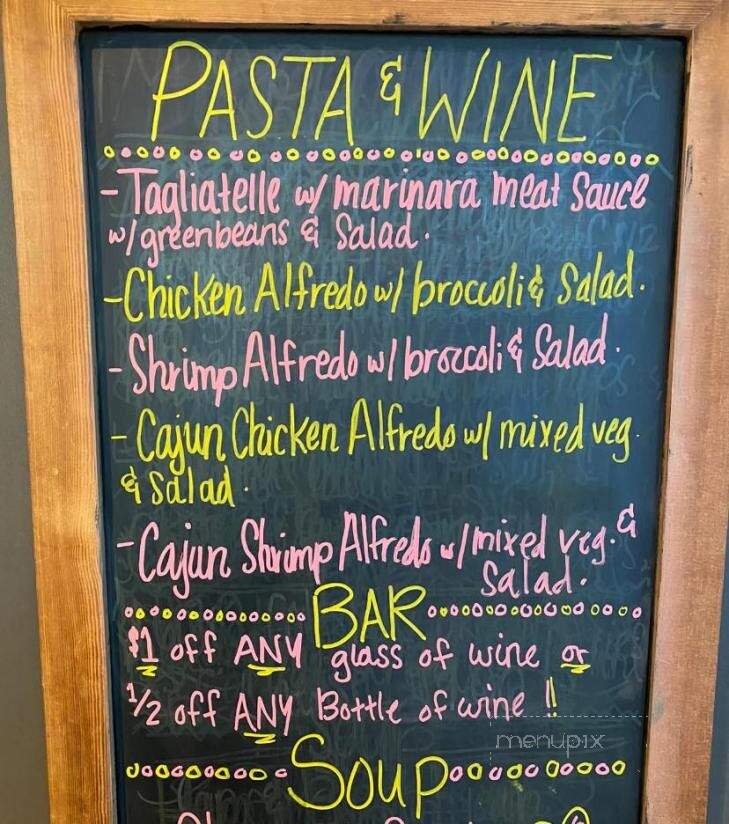 PASTA & WINE
- Tagliatelle w/ marinara meat sauce
w/greenbeans & Salad.
- Chicken Alfredo w/ broccoli & Salad.
- Shrimp Alfredo w/ broccoli & Salad.
- Cajun Chicken Alfredo w/ mixed veg.
& Salad.
- Cajun Shrimp Alfredo w/ mixed veg. &
Salad.
BAR
$1 off ANY glass of wine or
1/2 off ANY Bottle of wine !!
menupix
SOUP